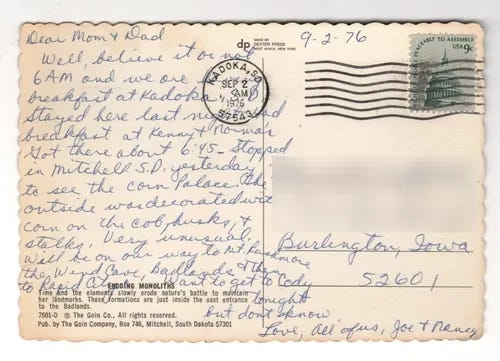 Dear Mom & Dad
Well, believe it or not
6 AM and we are
breakfast at Kadoka
Stayed here last
breakfast at Kenny & Norma's
Got there about 6:45 - Stopped
in Mitchell S.D. yesterday
to see the corn Palace. The
outside was decorated with
corn on the cob, husks, &
stalks. Very unusual.
Will be on our way to Mt Rushmore
the Wind Cave, Badlands & then
to Rapid City want to get to Cody
tonight
but don't know
Love, All of us, Joe & Nancy
ERODING MONOLITHS
Time and the elements slowly erode nature's battle to maintain
her landmarks. These formations are just inside the east entrance
to the Badlands.
7501-D © The Goin Co., All rights reserved.
Pub. by The Goin Company, Box 746, Mitchell, South Dakota 57301
dp
MADE BY
DEXTER PRESS
WEST NYACK, NEW YORK
9-2-76
KADOKA, SD
SEP 2
AM
1976
57543
PEACEABLY TO ASSEMBLE
USA 9c
Burlington, Iowa
52601